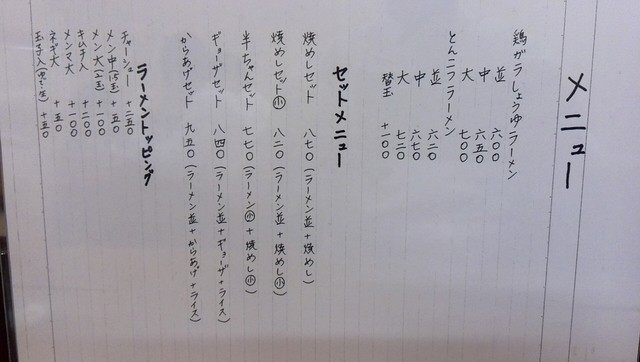 メニュー
鶏ガラしょうゆラーメン
並 六〇〇
中 六五〇
大 七〇〇
とんこつラーメン
並 六二〇
中 六七〇
大 七二〇
替玉 +一〇〇
セットメニュー
焼めしセット 八七〇(ラーメン並+焼めし)
焼めしセット㊥小 八二〇(ラーメン並+焼めし小)
半ちゃんセット 七七〇(ラーメン小+焼めし小)
ギョーザセット 八四〇(ラーメン並+ギョーザ+ライス)
からあげセット 九五〇(ラーメン並+からあげ+ライス)
ラーメントッピング
チャーシュー +二五〇
メン中(1.5玉) +五〇
メン大(2玉) +一〇〇
キムチ入 +二〇〇
メンマ大 +一〇〇
ネギ大 +五〇
玉子入 +五〇